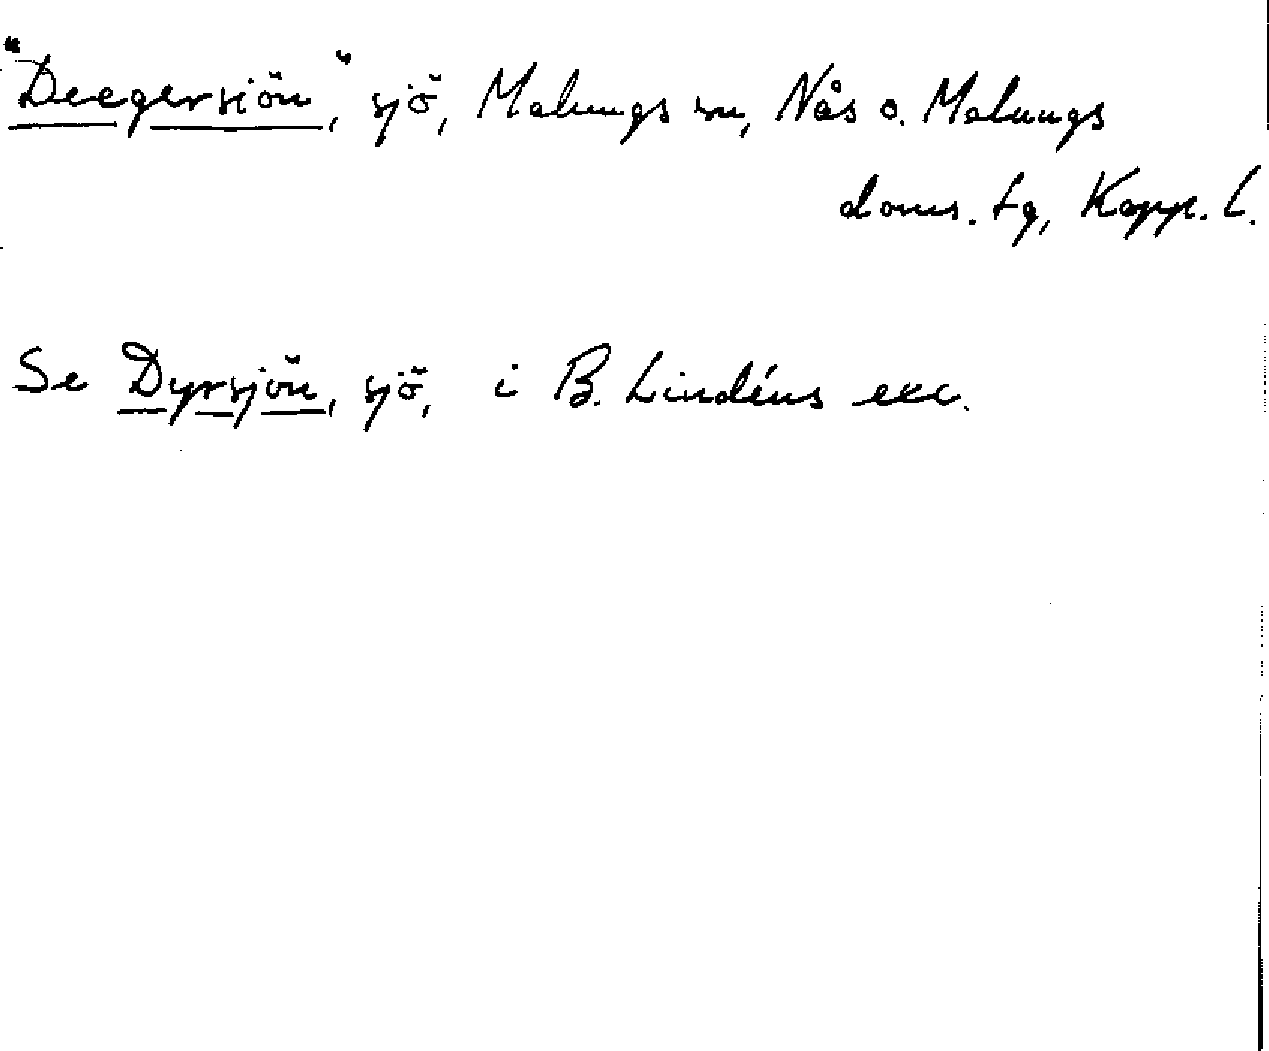 "Deegersiön", sjö, Malungs sn, Nås o. Malungs
doms. tg, Kopp. l.
Se Dyrsjön, sjö, i B. Lindéns exc.